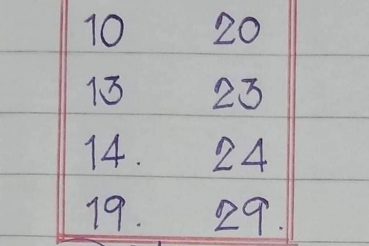 10 20
13 23
14. 24
19. 29.